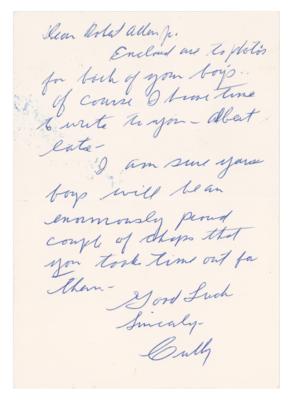 Dear Robert Allen Jr.
Enclosed are to photos
for both of your boys..
of course I have time
to write to you - Albeit
late -
I am sure your
boys will be an
enormously proud
couple of chaps that
you took time out for
them -
Good Luck
Sincerely -
Cully